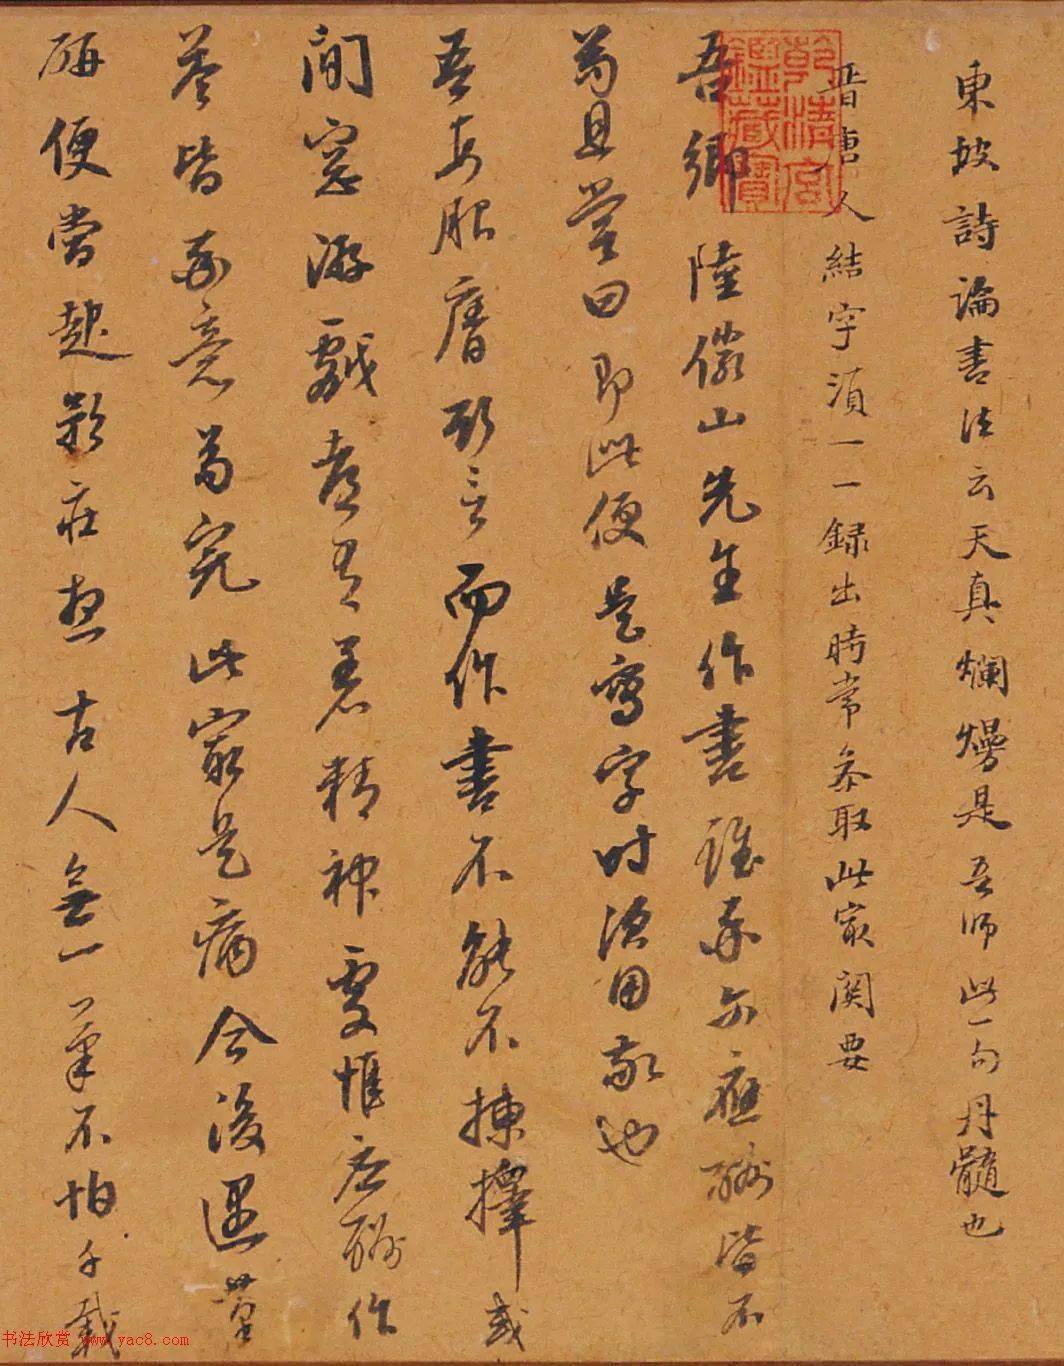 東坡詩論書法云天真爛熳是吾師此一句丹髓也
晉唐人結字須一一錄出時常參取此最關要
吾鄉陸儼山先生作書雖率爾應酬皆不
苟且嘗曰即此便是寫字時須用敬也
吾每服膺斯言而作書不能不揀擇或
閒窓游戲都有着精神惟應酬作
答皆率意苟完此最是病今後遇筆
研便當起矜莊想古人無一筆不怕千載
乾清宮鑑藏寶
书法欣赏 www.yac8.com